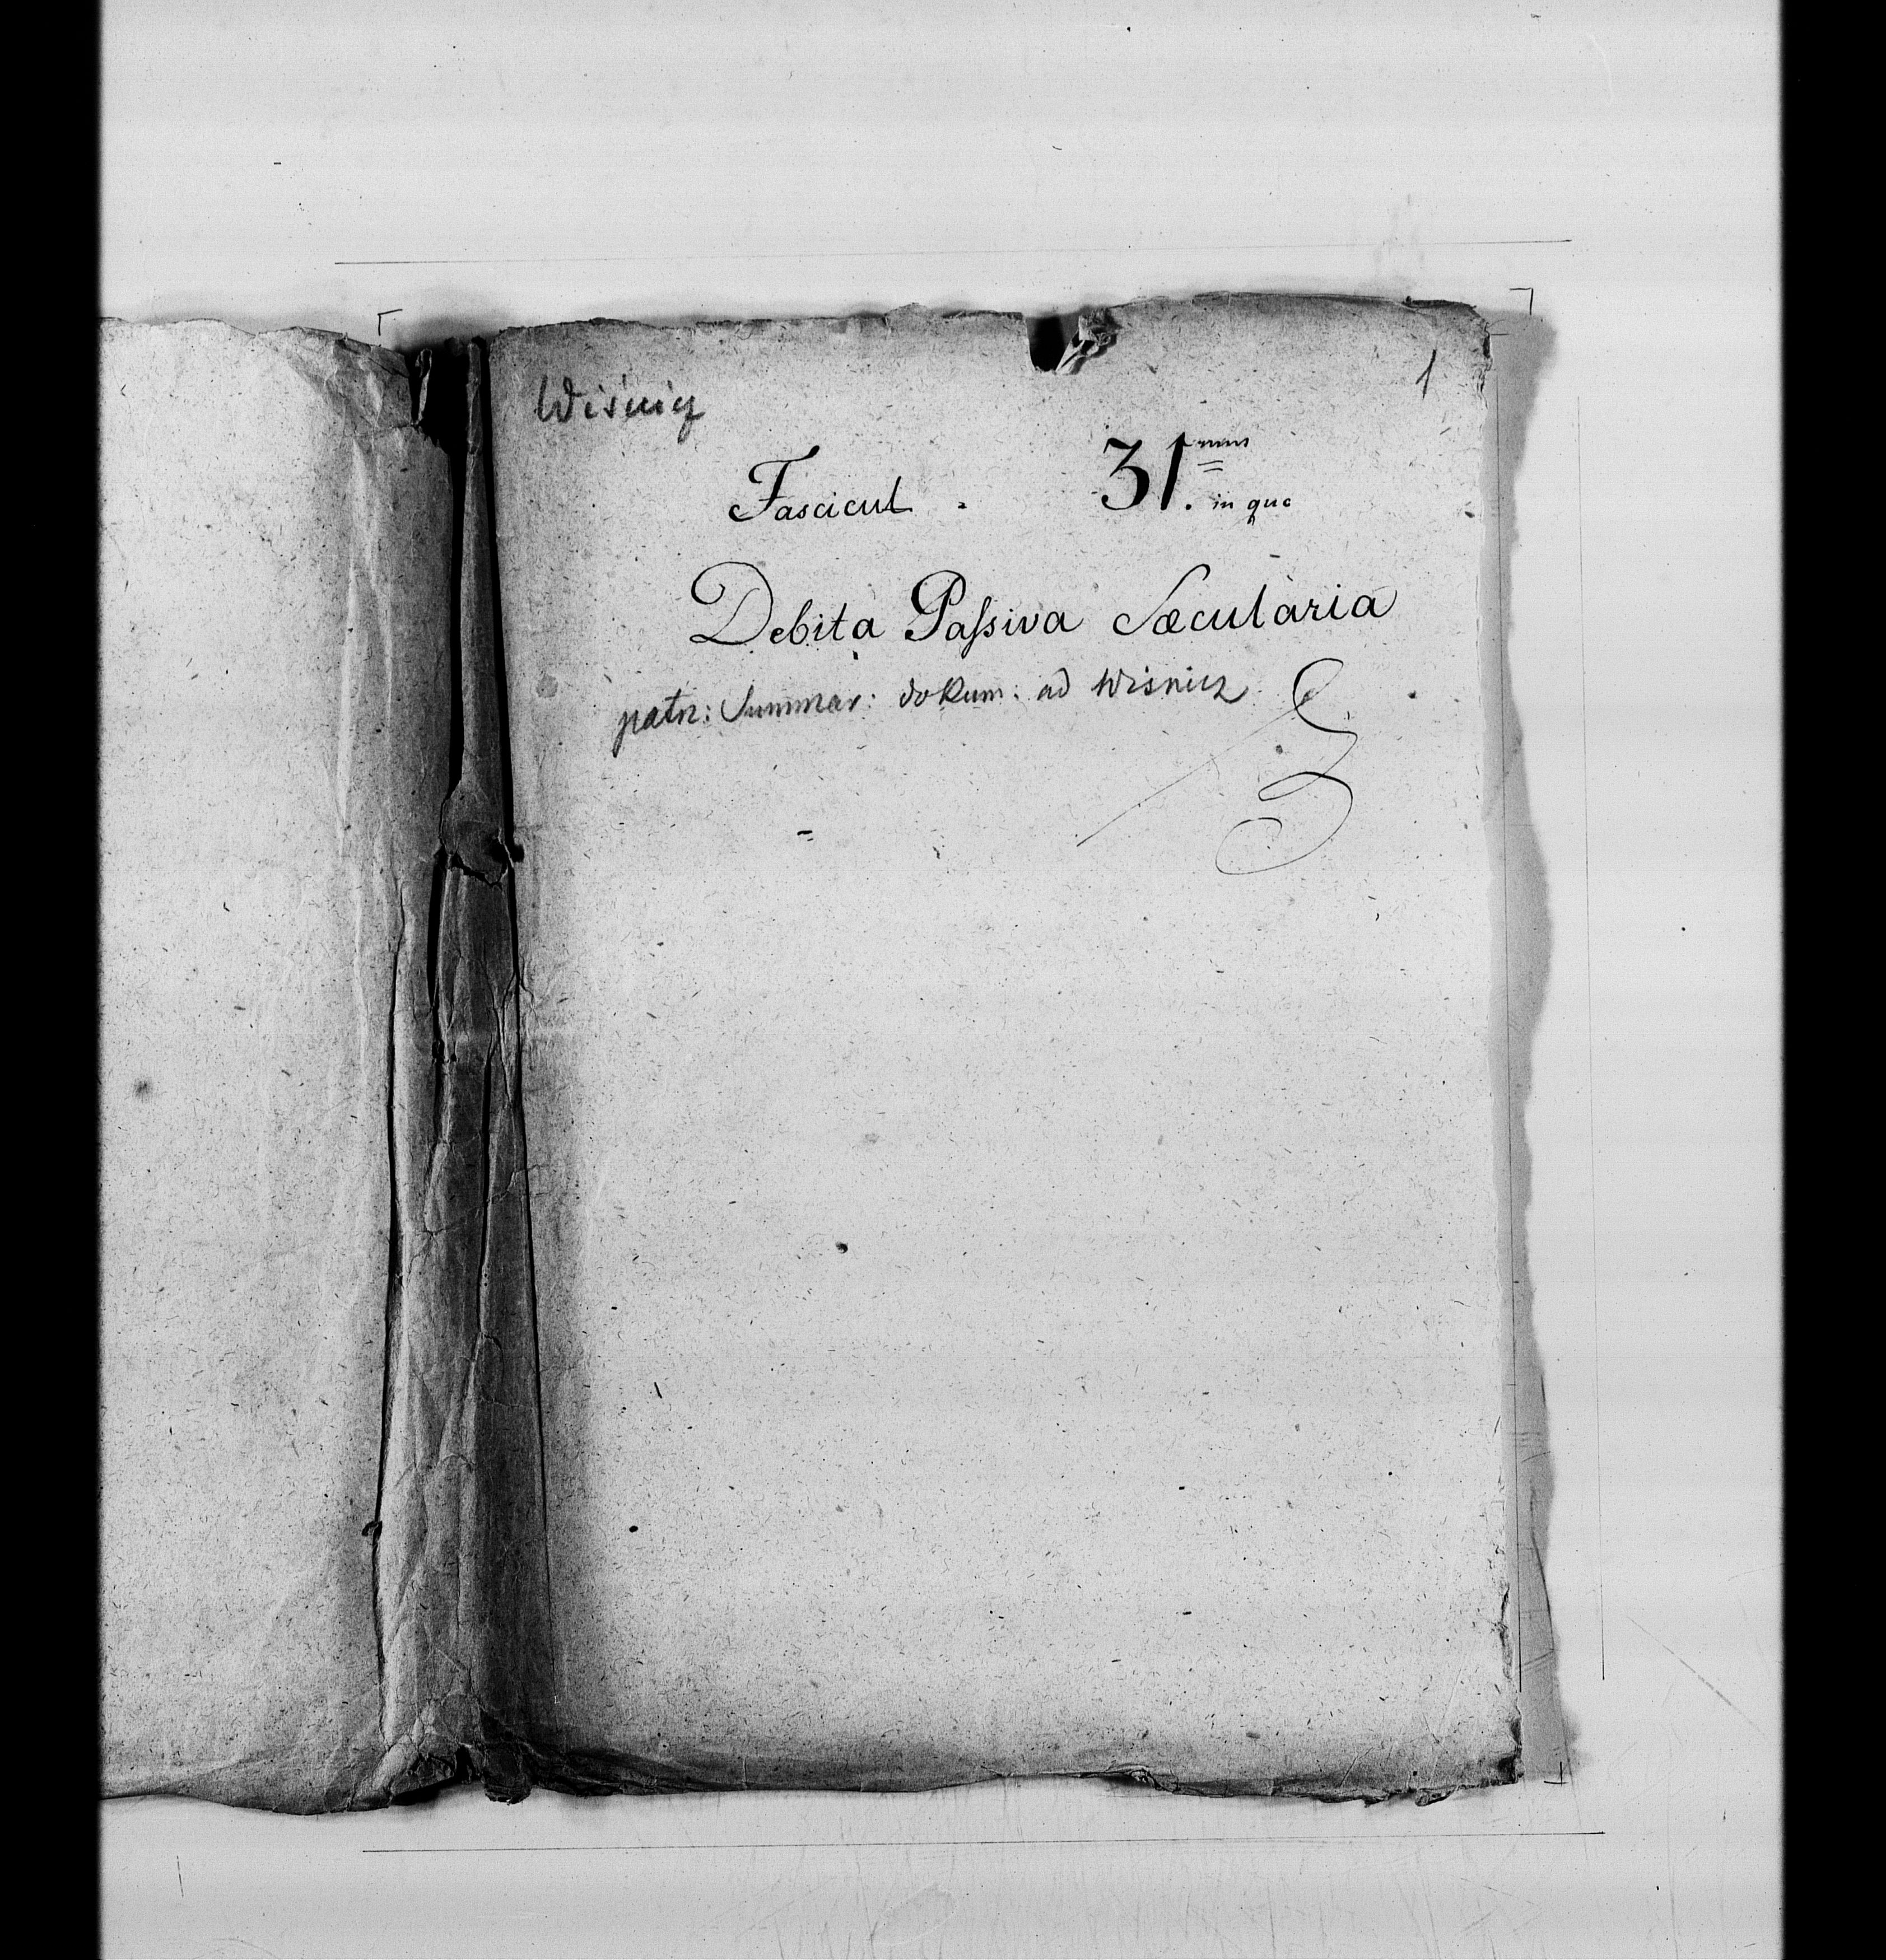 1
Wiśnicz
Fascicul. 31.mus in quo
Debita Paſsiva Sæcularia
patrz: Summar: dokum: ad Wiśnicz